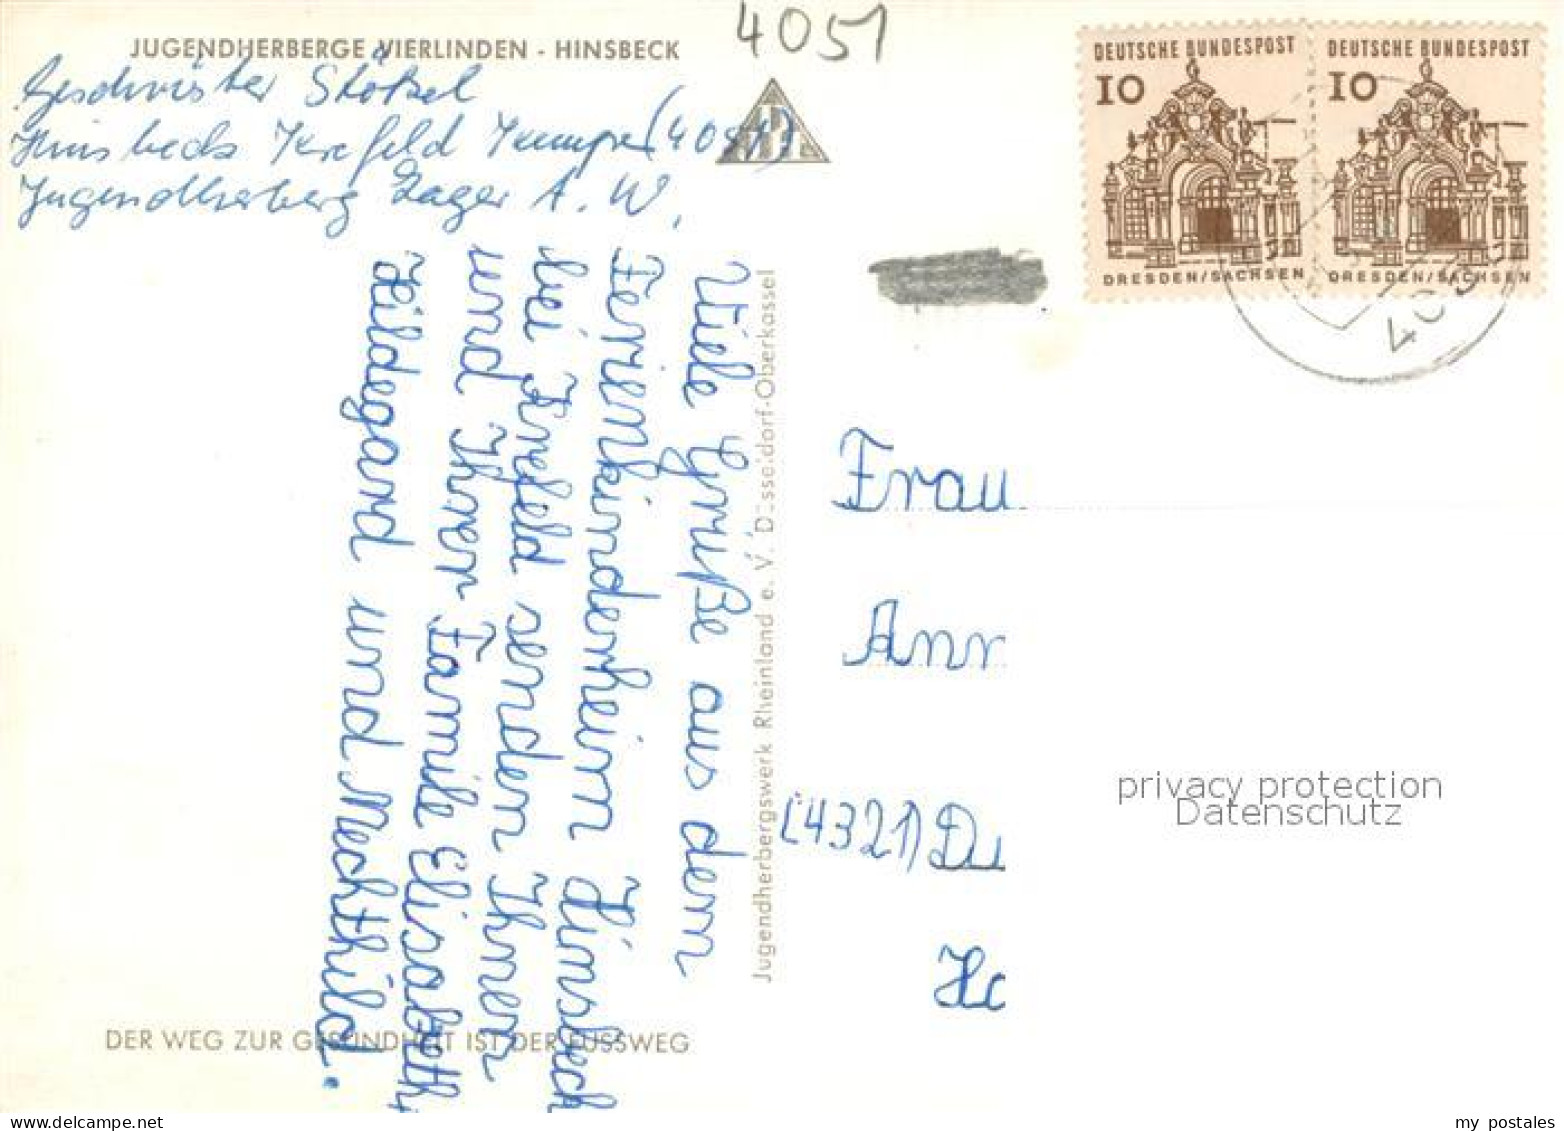 4051
JUGENDHERBERGE VIERLINDEN - HINSBECK
Geschwister Stößel
Hinsbeck Krefeld Kempen (4051)
Jugendherberg Lager A. W.
DEUTSCHE BUNDESPOST
10
DRESDEN/SACHSEN
DEUTSCHE BUNDESPOST
10
DRESDEN/SACHSEN
405
Viele Grüße aus dem
Ferienkinderheim Hinsbeck
bei Krefeld senden Ihnen
und Ihrer Familie Elisabeth,
Hildegard und Mechthild.
Jugendherbergswerk Rheinland e. V. Düsseldorf-Oberkassel
Frau
Ann
(4321) Du
Ha
privacy protection
Datenschutz
DER WEG ZUR GESUNDHEIT IST DER FUSSWEG
my postales